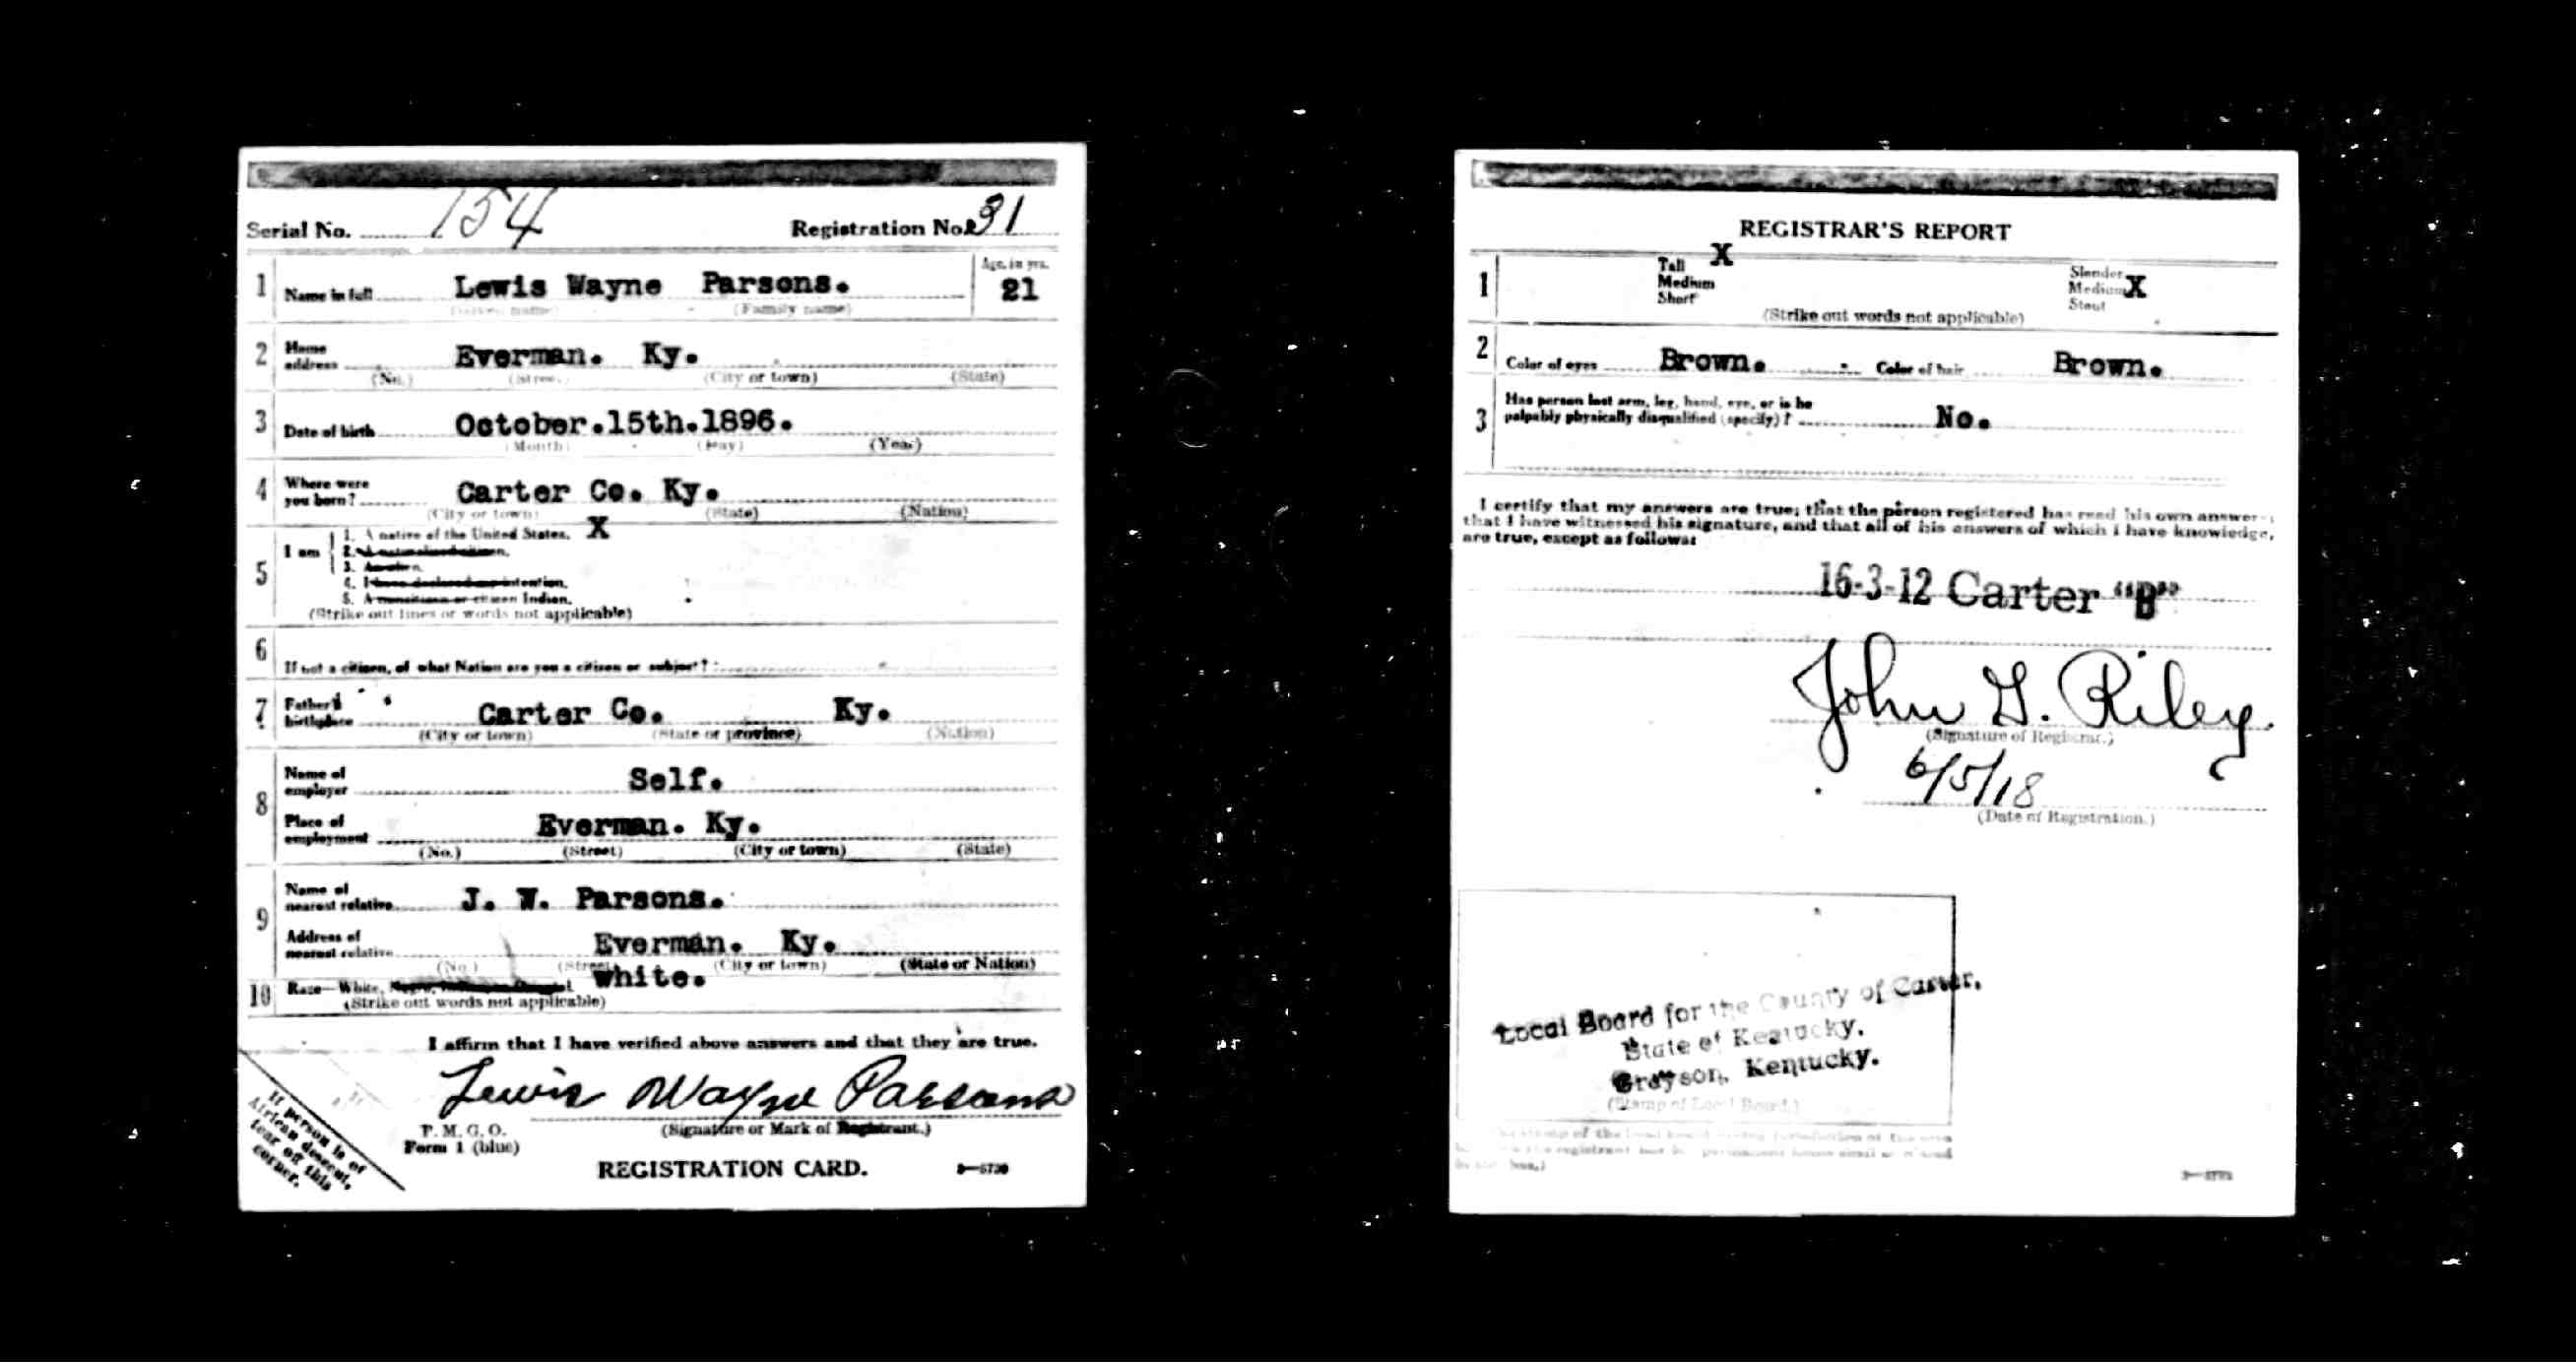 Serial No. 154 Registration No. 31
1 Name in full Lewis Wayne Parsons. Age, in yrs. 21
(Given name) (Family name)
2 Home address Everman. Ky.
(No.) (Street) (City or town) (State)
3 Date of birth October.15th.1896.
(Month) (Day) (Year)
4 Where were you born? Carter Co. Ky.
(City or town) (State) (Nation)
5 I am
1. A native of the United States. X
2. A naturalized citizen.
3. An alien.
4. I have declared my intention.
5. A noncitizen or citizen Indian.
(Strike out lines or words not applicable)
6 If not a citizen, of what Nation are you a citizen or subject?
7 Father's birthplace Carter Co. Ky.
(City or town) (State or province) (Nation)
8 Name of employer Self.
Place of employment Everman. Ky.
(No.) (Street) (City or town) (State)
9 Name of nearest relative J. W. Parsons.
Address of nearest relative Everman. Ky.
(No.) (Street) (City or town) (State or Nation)
10 Race—White, White.
(Strike out words not applicable)
I affirm that I have verified above answers and that they are true.
Lewis Wayne Parsons
(Signature or Mark of Registrant.)
P. M. G. O.
Form 1 (blue)
REGISTRATION CARD.
If person is of
African descent,
tear off this
corner.
REGISTRAR'S REPORT
1 Tall X Slender
Medium Medium X
Short Stout
(Strike out words not applicable)
2 Color of eyes Brown. Color of hair Brown.
3 Has person lost arm, leg, hand, eye, or is he
palpably physically disqualified (specify)? No.
I certify that my answers are true; that the person registered has read his own answers;
that I have witnessed his signature, and that all of his answers of which I have knowledge,
are true, except as follows:
16-3-12 Carter "B"
John G. Riley
(Signature of Registrar.)
6/5/18
(Date of Registration.)
Local Board for the County of Carter,
State of Kentucky.
Grayson, Kentucky.
(Stamp of Local Board.)